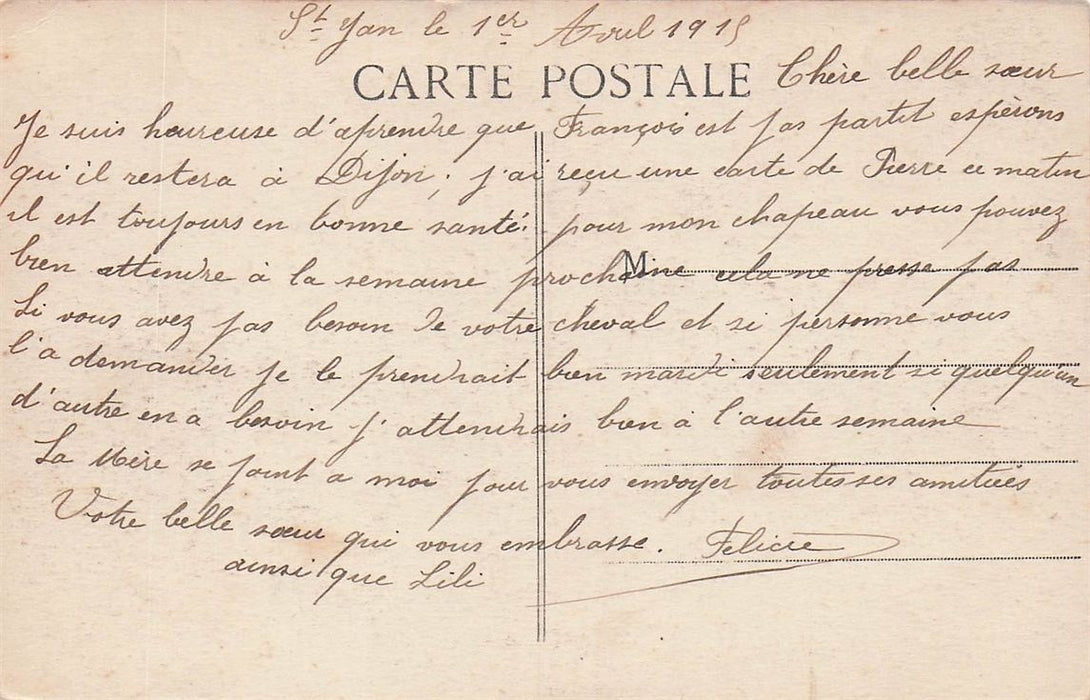 St Yan le 1er Avril 1915
CARTE POSTALE
Chère belle sœur
Je suis heureuse d'aprendre que François est pas partit espèrons
qu'il restera à Dijon, j'ai reçu une carte de Pierre ce matin
il est toujours en bonne santé. pour mon chapeau vous pouvez
bien attendre à la semaine prochaine cela ne presse pas
M
Si vous avez pas besoin de votre cheval et si personne vous
l'a demander je le prendrait bien mardi seulement si quelqu'un
d'autre en a besoin j'attendrais bien à l'autre semaine
La Mère se joint a moi pour vous envoyer toutes ses amitiées
Votre belle sœur qui vous embrasse. Felicie
ainsi que Lili